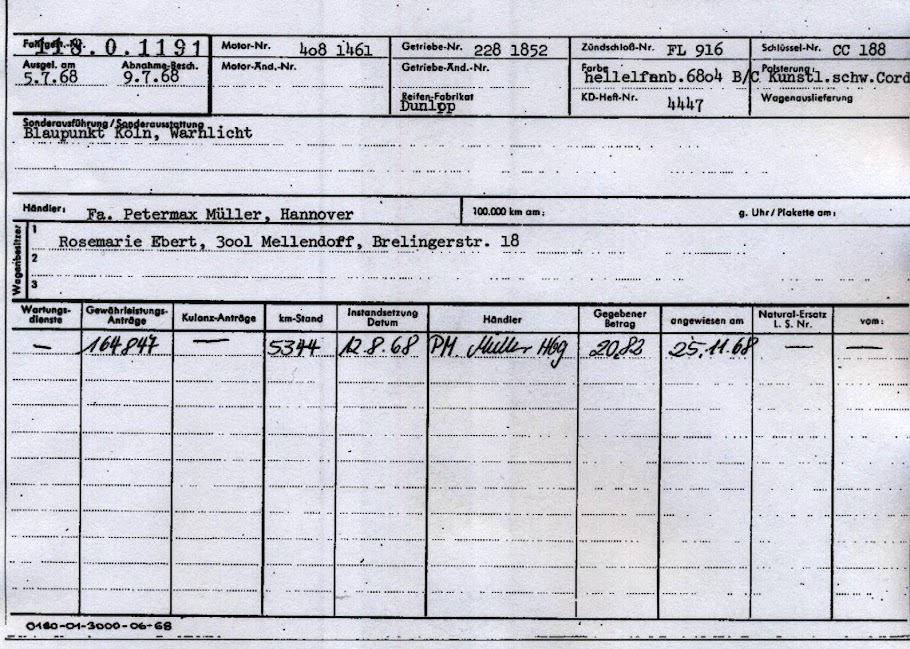 Fahrgest.-Nr. 118.0.1191 Motor-Nr. 408 1461 Getriebe-Nr. 228 1852 Zündschloß-Nr. FL 916 Schlüssel-Nr. CC 188
Ausgel. am 5.7.68 Abnahme-Besch. 9.7.68 Motor-Änd.-Nr. Getriebe-Änd.-Nr. Farbe hellelfanb.6804 B/C Polsterung: Kunstl.schw.Cord
Reifen-Fabrikat Dunlop KD-Heft-Nr. 4447 Wagenauslieferung
Sonderausführung/Sonderausstattung
Blaupunkt Köln, Warnlicht
Händler: Fa. Petermax Müller, Hannover 100.000 km am: g. Uhr/Plakette am:
Wagenbesitzer
1 Rosemarie Ebert, 3001 Mellendoff, Brelingerstr. 18
2
3
Wartungs-dienste Gewährleistungs-Anträge Kulanz-Anträge km-Stand Instandsetzung Datum Händler Gegebener Betrag angewiesen am Natural-Ersatz L. S. Nr. vom:
— 164847 — 5344 12.8.68 PM Müller Hbg 20,82 25.11.68 — —
0180-01-3000-06-68